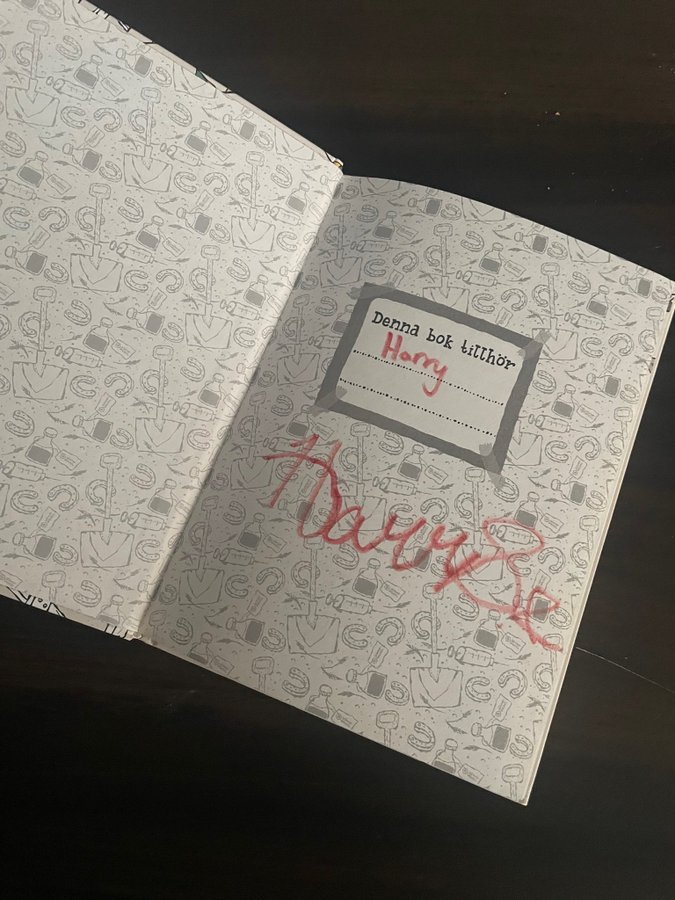 Denna bok tillhör
Harry
Harry